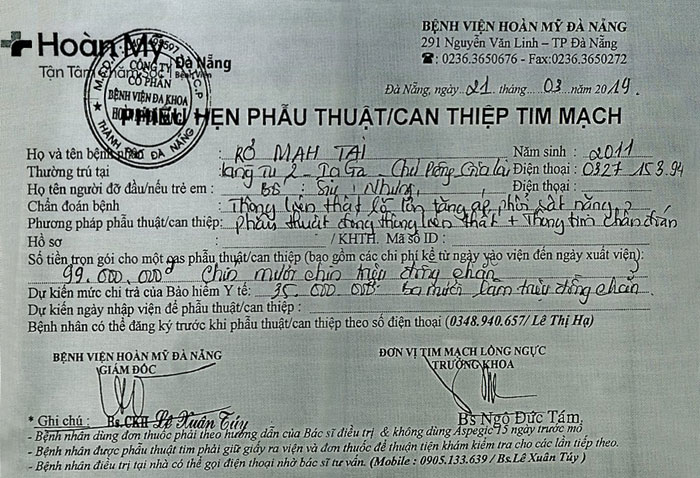 Hoàn Mỹ Đà Nẵng
Tận Tâm Chăm Sóc Bệnh Viện
CÔNG TY
CỔ PHẦN
BỆNH VIỆN ĐA KHOA
THÀNH PHỐ ĐÀ NẴNG
BỆNH VIỆN HOÀN MỸ ĐÀ NẴNG
291 Nguyễn Văn Linh – TP Đà Nẵng
☎: 0236.3650676 - Fax:0236.3650272
Đà Nẵng, ngày 21 tháng 03 năm 2019.
PHIẾU HẸN PHẪU THUẬT/CAN THIỆP TIM MẠCH
Họ và tên bệnh nhân : RƠ MAH TÀI Năm sinh : 2011
Thường trú tại : Làng Tu 2 - Ia Ga - Chư Prông Gia Lai Điện thoại : 0327 153.94
Họ tên người đỡ đầu/nếu trẻ em : Bố : Siu Nhưng Điện thoại :
Chẩn đoán bệnh : Thông liên thất lỗ lớn tăng áp phổi rất nặng
Phương pháp phẫu thuật/can thiệp: Phẫu thuật đóng thông liên thất + Thông tim chẩn đoán
Hồ sơ : / KHTH. Mã số ID :
Số tiền trọn gói cho một cas phẫu thuật/can thiệp (bao gồm các chi phí kể từ ngày vào viện đến ngày xuất viện):
99.000.000đ Chín mươi chín triệu đồng chẵn
Dự kiến mức chi trả của Bảo hiểm Y tế: 35.000.000 Ba mươi lăm triệu đồng chẵn.
Dự kiến ngày nhập viện để phẫu thuật/can thiệp :
Bệnh nhân có thể đăng ký trước khi phẫu thuật/can thiệp theo số điện thoại (0348.940.657/ Lê Thị Hạ)
BỆNH VIỆN HOÀN MỸ ĐÀ NẴNG
GIÁM ĐỐC
ĐƠN VỊ TIM MẠCH LỒNG NGỰC
TRƯỞNG KHOA
Bs.CKII Lê Xuân Túy
Bs Ngô Đức Tám.
* Ghi chú :
- Bệnh nhân dùng đơn thuốc phải theo hướng dẫn của Bác sĩ điều trị & không dùng Aspegic 15 ngày trước mổ
- Bệnh nhân được phẫu thuật tim phải giữ giấy ra viện và đơn thuốc để thuận tiện khám kiểm tra cho các lần tiếp theo.
- Bệnh nhân điều trị tại nhà có thể gọi điện thoại nhờ bác sĩ tư vấn. (Mobile : 0905.133.639 / Bs.Lê Xuân Túy )